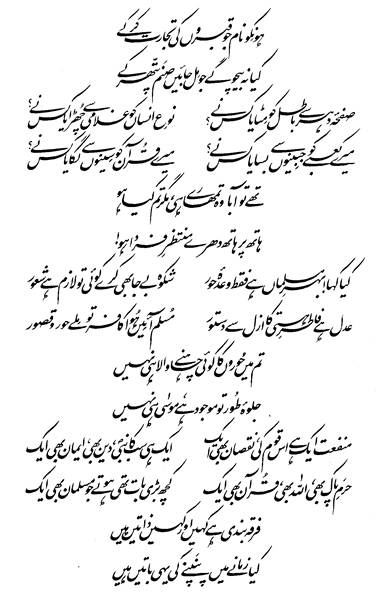 ہو نکو نام جو قبروں کی تجارت کرکے
کیا نہ بیچو گے جو مل جائیں صنم پتھر کے
صفحۂ دہر سے باطل کو مٹایا کس نے؟ نوعِ انساں کو غلامی سے چھڑایا کس نے؟
میرے کعبے کو جبینوں سے بسایا کس نے؟ میرے قرآن کو سینوں سے لگایا کس نے؟
تھے تو آبا وہ تمھارے ہی، مگر تم کیا ہو
ہاتھ پر ہاتھ دھرے منتظرِ فردا ہو!
کیا کہا! بہرِ مسلماں ہے فقط وعدۂ حور شکوہ بے جا بھی کرے کوئی تو لازم ہے شعور
عدل ہے فاطرِ ہستی کا ازل سے دستور مُسلم آئیں ہُوا کافر تو ملے حور و قصور
تم میں حوروں کا کوئی چاہنے والا ہی نہیں
جلوۂ طُور تو موجود ہے، موسٰی ہی نہیں
منفعت ایک ہے اس قوم کی، نقصان بھی ایک ایک ہی سب کا نبیؐ، دین بھی، ایمان بھی ایک
حرمِ پاک بھی، اللہ بھی، قرآن بھی ایک کچھ بڑی بات تھی ہوتے جو مسلمان بھی ایک
فرقہ بندی ہے کہیں اور کہیں ذاتیں ہیں
کیا زمانے میں پنپنے کی یہی باتیں ہیں